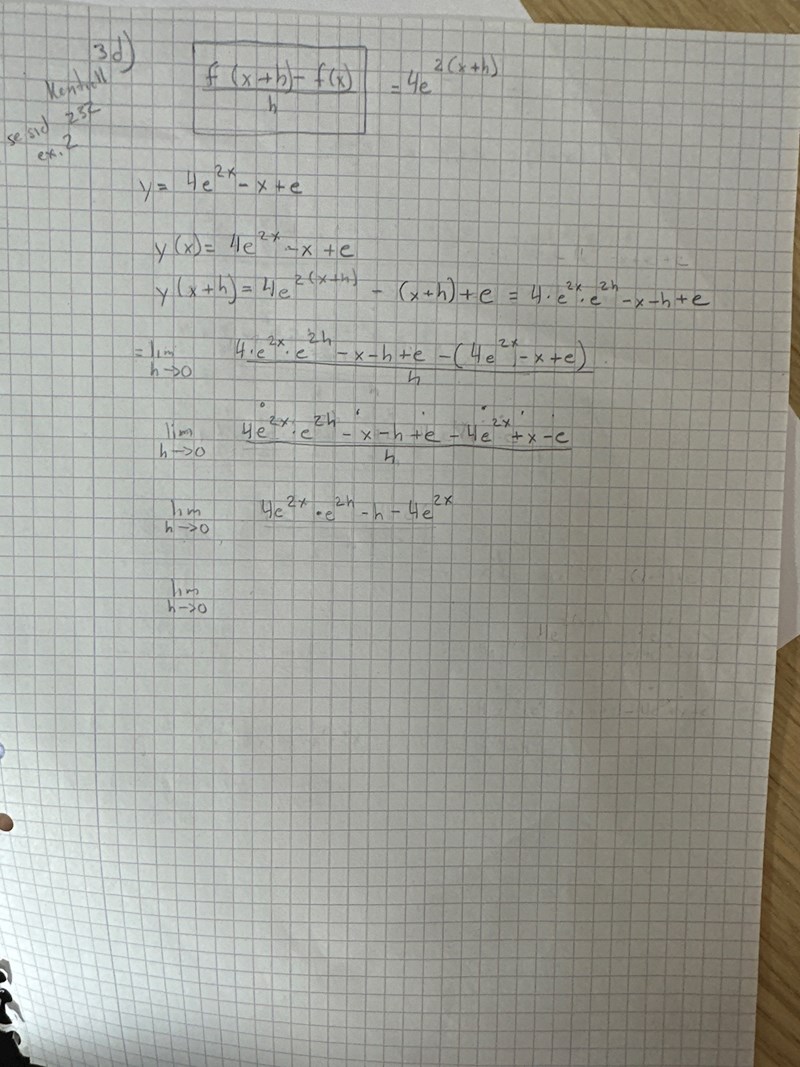 3d)
f(x+h) - f(x) / h = 4e^2(x+h)
se sid 232
ex. 2
y = 4e^2x - x + e
y(x) = 4e^2x - x + e
y(x+h) = 4e^2(x+h) - (x+h) + e = 4·e^2x·e^2h - x - h + e
= lim h→0 4·e^2x·e^2h - x - h + e - (4e^2x - x + e) / h
lim h→0 4e^2x·e^2h - x - h + e - 4e^2x + x - e / h
lim h→0 4e^2x·e^2h - h - 4e^2x
lim h→0